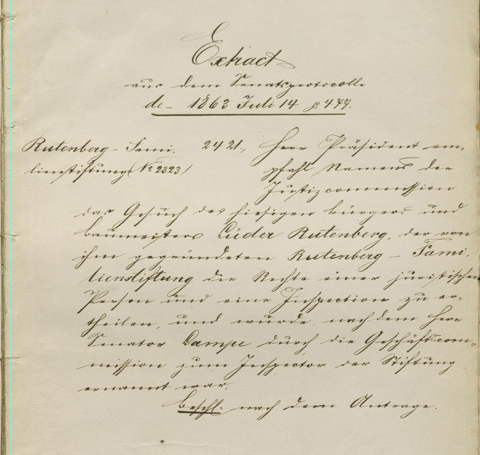 Extract
aus dem Senatsprotocolle
de 1863 Juli 14 p. 477.
Rutenberg-Fami- 2421, Herr Präsident em-
lienstiftung (No 2323) pfahl Namens der
Justizcommission
das Gesuch des hiesigen Bürgers und
Baumeisters Lüder Rutenberg, der von
ihm gegründeten Rutenberg-Fami-
lienstiftung die Rechte einer juristischen
Person und eine Inspection zu er-
theilen, und wurde, nachdem Herr
Senator Lampe durch die Geschäftscom-
mission zum Inspector der Stiftung
ernannt war
beschl. nach dem Antrage.